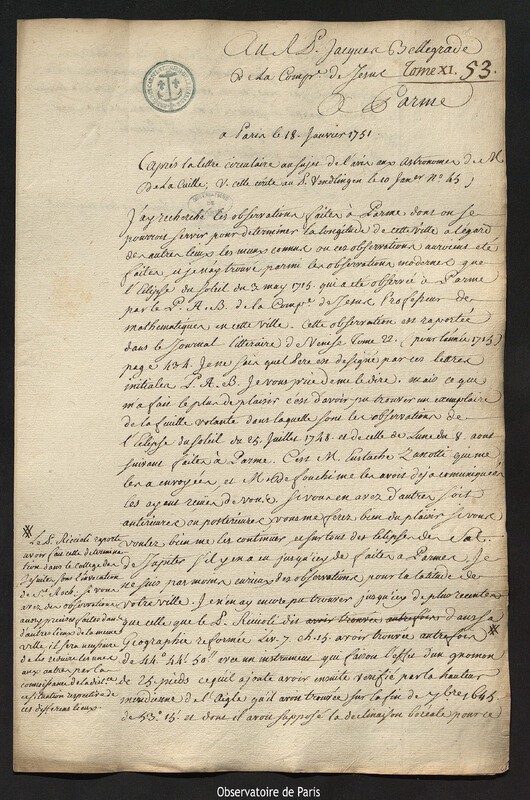 Au R. P. Jacques Bellegrade
de la Comp.e de Jesus Tome XI. 53.
à Parme
à Paris le 18. Janvier 1751.
(après la lettre circulaire au sujet de l'avis aux astronomes de M.
De la Caille; V. cette ecrite au P. Vendlingen le 10 Janv.er N.o 45)
J'ay recherché les observations faites à Parme dont on se
pourroit servir pour determiner la longitude de cette ville à l'egard
des autres lieux les mieux connus ou ces observations auroient eté
faites, et je n'ay trouvé parmi les observations modernes que
l'Eclipse du Soleil du 3 may 1715 qui a eté observée à Parme
par le P. A. B. de la Comp.e de Jesus Professeur de
mathematiques en cette ville. Cette observation est raportée
dans le Journal litteraire de Venise Tome 22. (pour l'année 1715)
page 434. Je ne sais quel Pere est designé par ces lettres
initiales P. A. B. Je vous prie de me le dire. mais ce qui
m'a fait le plus de plaisir c'est d'avoir pu trouver un exemplaire
de la feuille volante dans laquelle sont les observations de
l'Eclipse du Soleil du 25. Juillet 1748 et de celle de Lune du 8. aout
suivant faites à Parme. C'est M. Eustache Zanotti qui me
les a envoyées et M. de Fouchi me les avoit deja communiquées
les ayant reçues de vous. Si vous en avez d'autres soit
anterieures ou posterieures vous me ferez bien du plaisir si vous
voulez bien me les continuer et surtout des Eclipses des Sat.
de Jupiter s'il y en a eu jusqu'icy de faites à Parme. Je
ne suis pas moins curieux des observations pour la latitude de
votre ville. Je n'en ay encore pu trouver jusqu'icy de plus recentes
que celle que le P. Riccioli dit avoir trouvée autrefois dans sa
Geographie reformée Liv. 7. ch. 15. avoir trouvée autrefois ※
de 44.° 44.' 50." avec un instrument qui faisoit l'effet d'un gnomon
de 25 pieds ce qu'il ajoute avoir ensuite verifié par la hauteur
meridienne de l'Aigle qu'il avoit trouvée sur la fin de 7bre 1645
de 53.° 15.' et dont il avoit supposé la declinaison boréale pour ce
※ Le P. Riccioli raporte
avoir fait cette determina-
tion dans le college des
Jesuites sous l'invocation
de S.t Roch. Si vous
avez des observations
aussy precises faites dans
d'autres lieux de la meme
ville, il sera necessaire
de les reduire les unes
aux autres par la
connoissance de la dist.ce
et situation respective de
ces differens lieux.
Observatoire de Paris